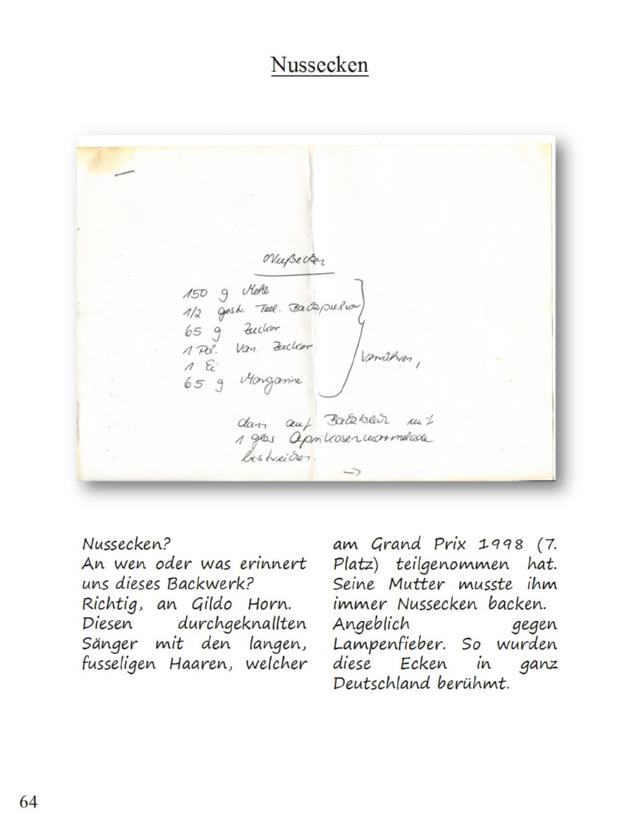 Nussecken
Nußecken
150 g Mehl
1/2 gestr. Teel. Backpulver
65 g Zucker
1 Pck. Van. Zucker
1 Ei
65 g Margarine
verrühren,
dann auf Backblech mit
1 glas Aprikosenmarmelade
bestreichen.
→
Nussecken?
An wen oder was erinnert
uns dieses Backwerk?
Richtig, an Gildo Horn.
Diesen durchgeknallten
Sänger mit den langen,
fusseligen Haaren, welcher
am Grand Prix 1998 (7.
Platz) teilgenommen hat.
Seine Mutter musste ihm
immer Nussecken backen.
Angeblich gegen
Lampenfieber. So wurden
diese Ecken in ganz
Deutschland berühmt.
64